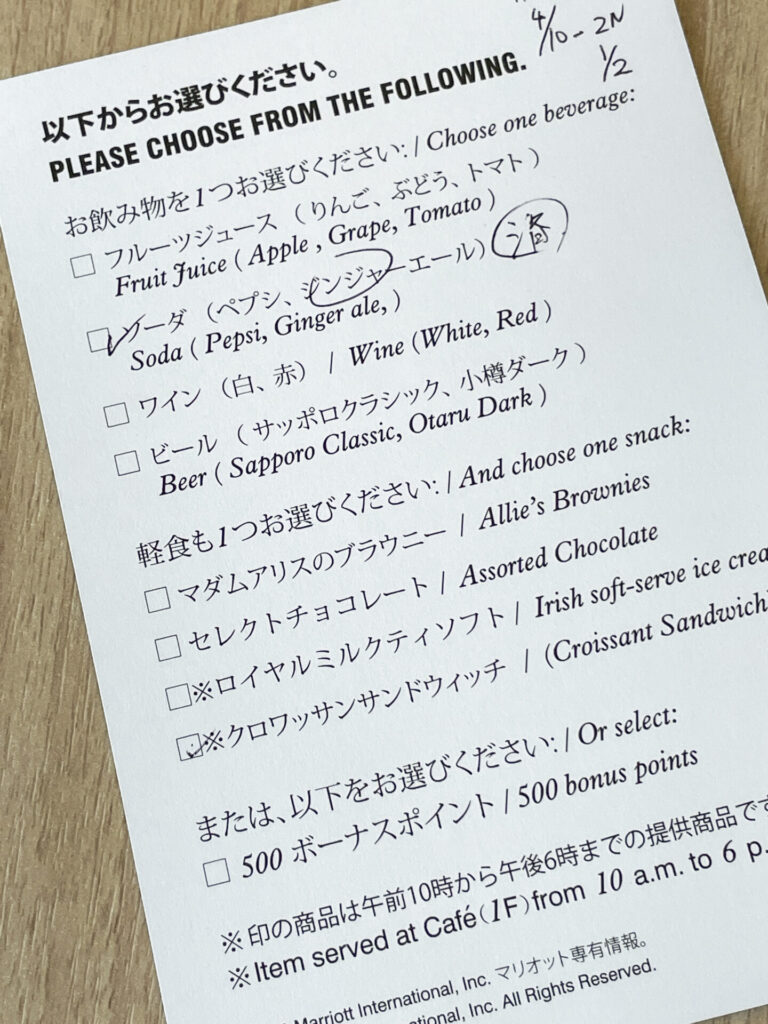 4/10-2N
1/2
以下からお選びください。
PLEASE CHOOSE FROM THE FOLLOWING.
お飲み物を1つお選びください: / Choose one beverage:
□ フルーツジュース （りんご、ぶどう、トマト）
Fruit Juice ( Apple , Grape, Tomato )
☑ ソーダ （ペプシ、ジンジャーエール） 済
Soda ( Pepsi, Ginger ale, )
□ ワイン （白、赤） / Wine (White, Red )
□ ビール （サッポロクラシック、小樽ダーク）
Beer ( Sapporo Classic, Otaru Dark )
軽食も1つお選びください: / And choose one snack:
□ マダムアリスのブラウニー / Allie's Brownies
□ セレクトチョコレート / Assorted Chocolate
□※ロイヤルミルクティソフト / Irish soft-serve ice crea
☑※クロワッサンサンドウィッチ / (Croissant Sandwich
または、以下をお選びください: / Or select:
□ 500 ボーナスポイント / 500 bonus points
※ 印の商品は午前10時から午後6時までの提供商品です
※ Item served at Café(1F)from 10 a.m. to 6 p.
Marriott International, Inc. マリオット専有情報。
national, Inc. All Rights Reserved.